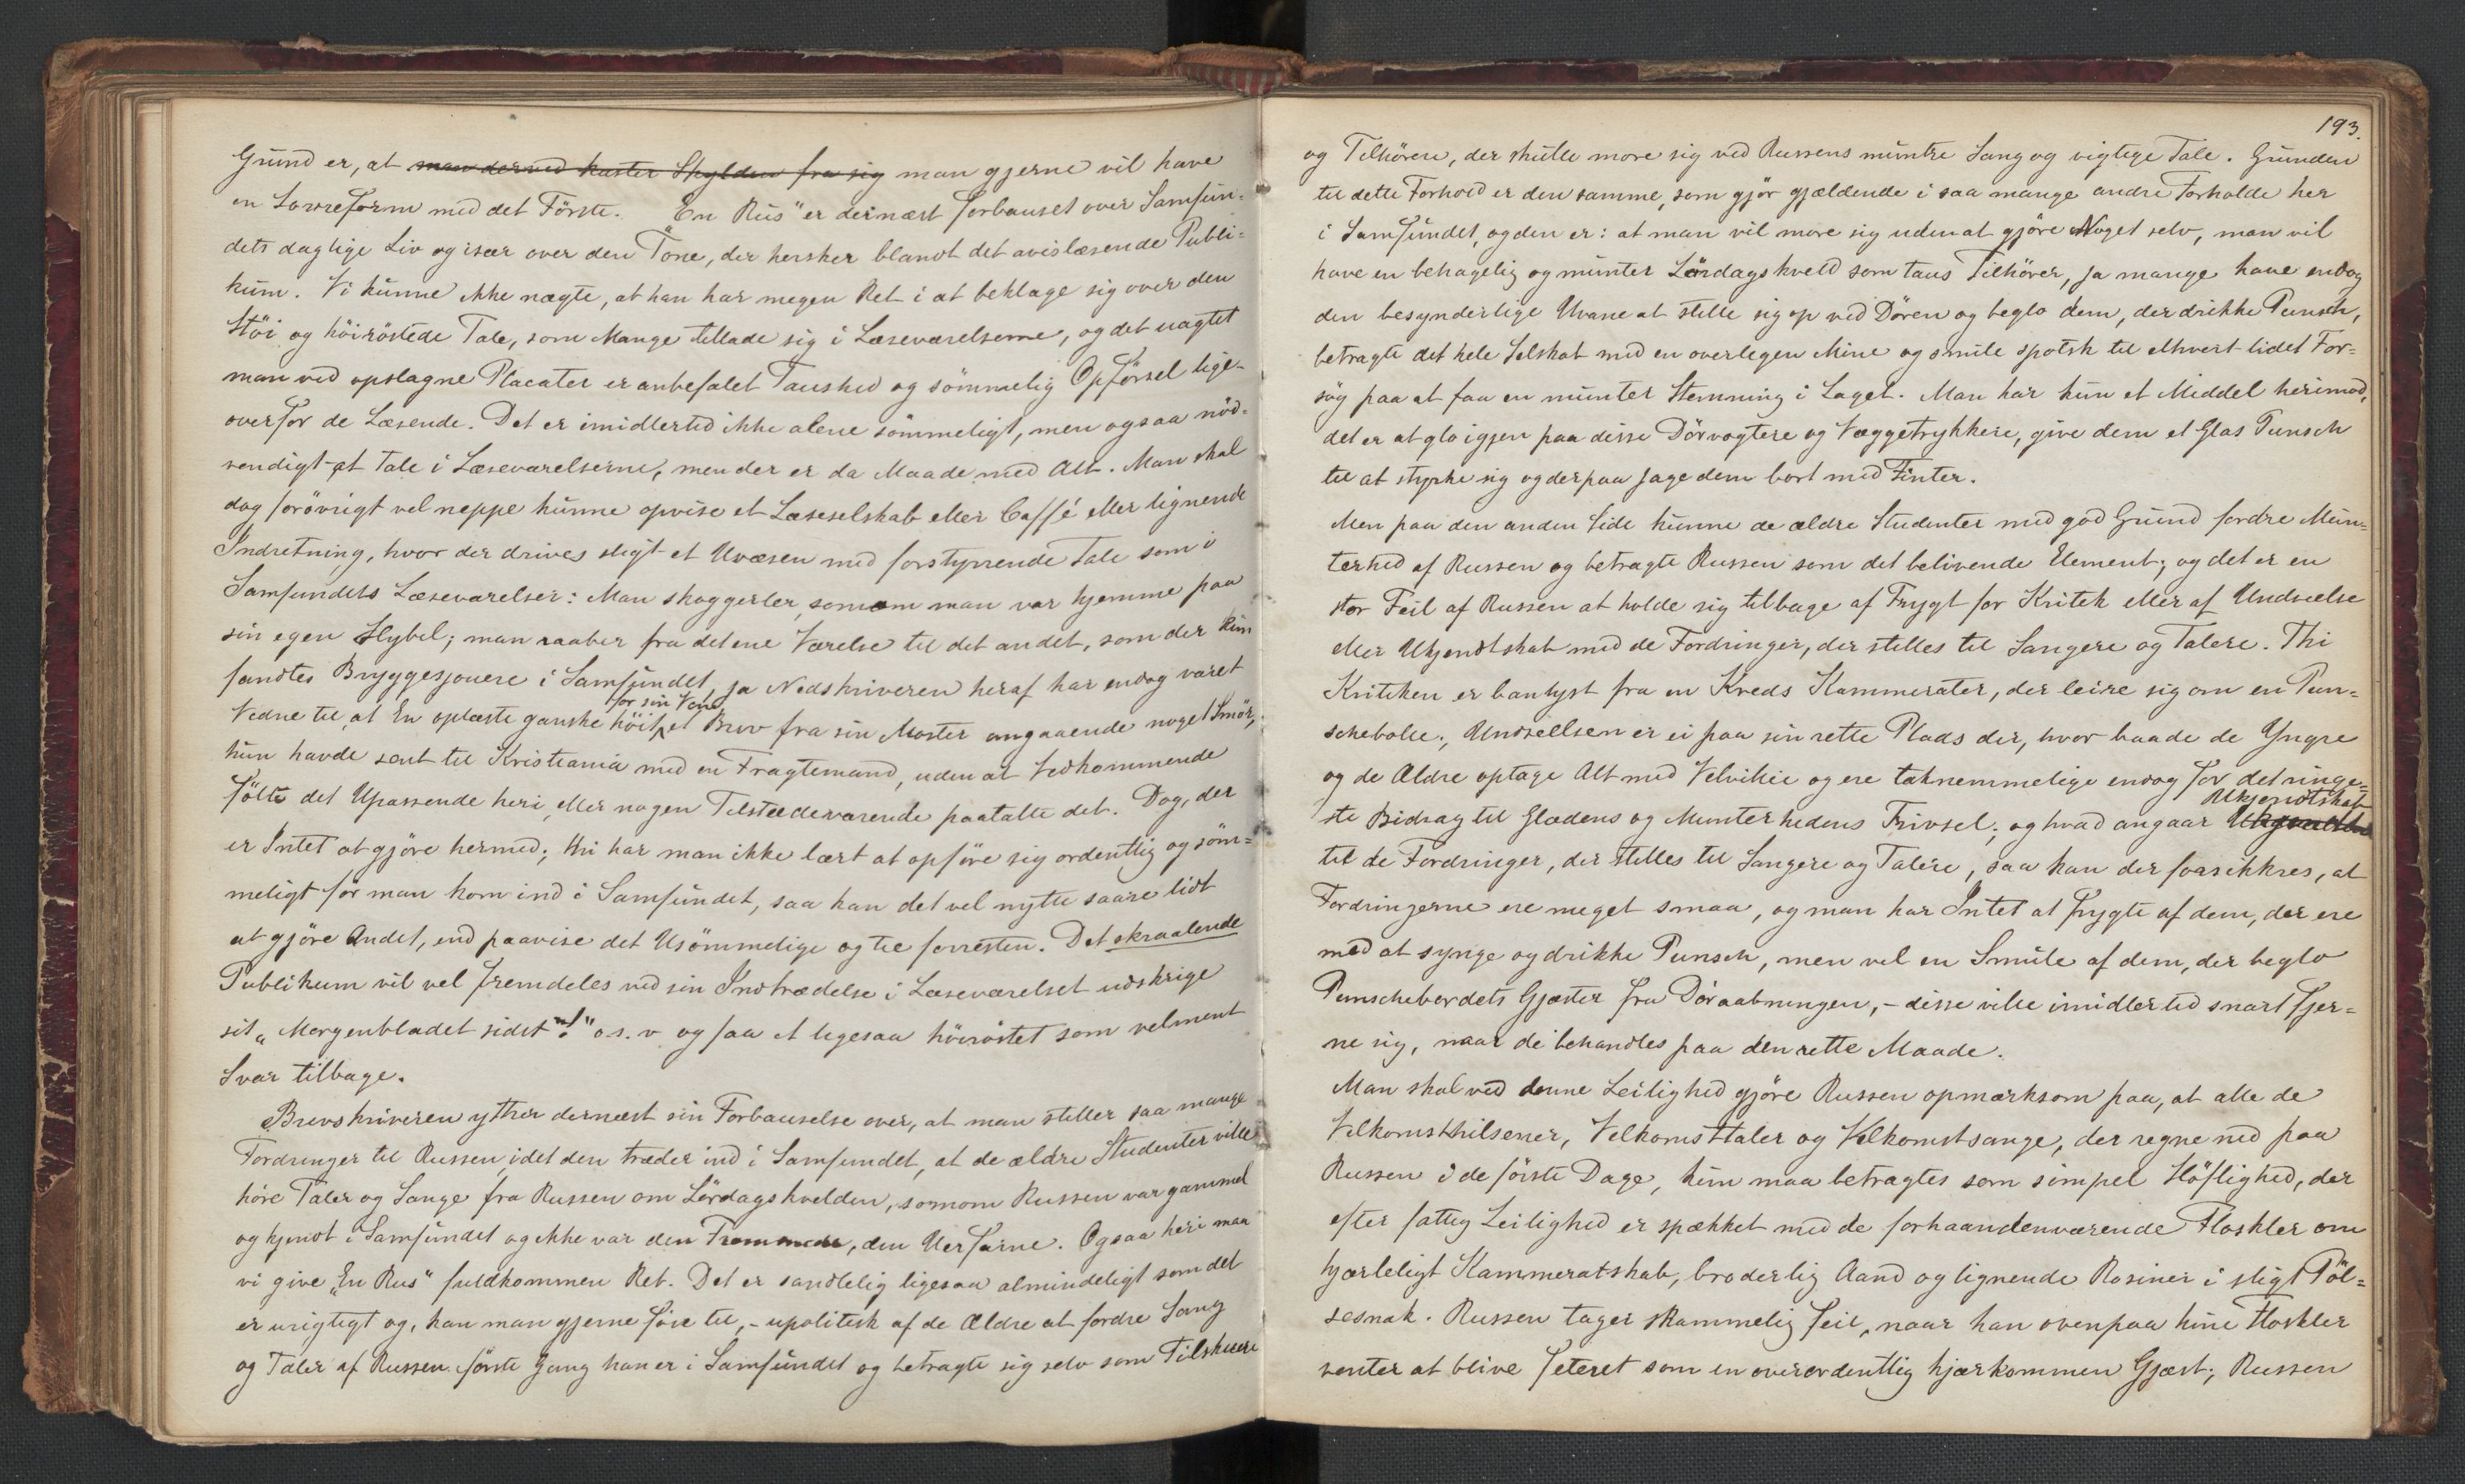 Grund er, at man derved kaster Skylden fra sig man gjerne vil have
en Lovreform med det Förste. En Rus" er dernæst forbauset over Samfun-
dets daglige Liv og især over den Tone, der hersker blandt det avislæsende Publi-
kum. Vi kunne ikke nægte, at han har megen Ret i at beklage sig over den
Stöi og höiröstede Tale, som Mange tillade sig i Læseværelserne, og det uagtet
man ved opslagne Placater er anbefalet Taushed og sömmelig Opförsel lige-
overfor de Læsende. Det er imidlertid ikke alene sömmeligt, men ogsaa nöd-
vendigt at Tale i Læseværelserne, men der er da Maade med Alt. Man skal
dog forövrigt vel neppe kunne opvise et Læseselskab eller Caffé eller lignende
Indretning, hvor der drives sligt et Uvæsen med forstyrrende Tale som i
Samfundets Læseværelser: Man skoggerler, somom man var hjemme paa
sin egen Hybel; man raaber fra det ene Værelse til det andet, som der kun
fandtes Bryggesjouere i Samfundet, ja Nedskriveren heraf har endog været
for sin Ven
Vidne til, at En oplæste ganske höit et Brev fra sin Moster angaaende noget Smör,
hun havde sent til Kristiania med en Fragtemand, uden at Vedkommende
fölte det Upassende heri, eller nogen Tilstedeværende paatalte det. Dog, der
er Intet at gjöre hermed; thi har man ikke lært at opföre sig ordentlig og söm-
meligt för man kom ind i Samfundet, saa kan det vel nytte saare lidt
at gjöre Andet, end paavise det Usömmelige og tie forresten. Det skraalende
Publikum vil vel fremdeles ved sin Indtrædelse i Læseværelset udskrige
sit „Morgenbladet sidst"!" o.s.v og faa et ligesaa höiröstet som velment
Svar tilbage.
Brevskriveren yttrer dernæst sin Forbauselse over, at man stiller saa mange
Fordringer til Russen idet den træder ind i Samfundet, at de ældre Studenter ville
höre Taler og Sange fra Russen om Lördagskvelden, somom Russen var gammel
og kjendt i Samfundet og ikke var den Fremmede, den Uerfarne. Ogsaa heri maa
vi give „En Rus" fuldkommen Ret. Det er sandtelig ligesaa almindeligt som det
er urigtigt og, kan man gjerne föie til, - upolitisk af de Ældre at fordre Sang
og Taler af Russen förste Gang han er i Samfundet og betragte sig selv som Tilskuere
193.
og Tilhörere, der skulle more sig ved Russens muntre Sang og vigtige Tale. Grunden
til dette Forhold er den samme, som gjör gjældende i saa mange andre Forholde her
i Samfundet, og den er: at man vil more sig uden at gjöre Noget selv, man vil
have en behagelig og munter Lördagskveld som taus Tilhörer, ja mange have endog
den besynderlige Uvane at stille sig op ved Dören og beglo dem, der drikke Punsch,
betragte det hele Selskab med en overlegen Mine og smile spotsk til ethvert lidet For-
sög paa at faa en munter Stemning i Laget. Man har kun et Middel herimod,
det er at glo igjen paa disse Dörvogtere og Væggetrykkere, give dem et Glas Punsch
til at styrke sig og derpaa jage dem bort med Finter.
Men paa den anden Side kunne de ældre Studenter med god Grund fordre Mun-
terhed af Russen og betragte Russen som det belivende Element; og det er en
stor Feil af Russen at holde sig tilbage af Frygt for Kritik eller af Undseelse
eller Ukjendtskab med de Fordringer, der stilles til Sangere og Talere. Thi
Kritiken er banlyst fra en Kreds Kammerater, der leire sig om en Pun-
schebolle; Undseelsen er ei paa sin rette Plads der, hvor baade de Yngre
og de Ældre optage Alt med Velvilie og ere taknemmelige endog for det ringe-
Ukjendtskab
ste Bidrag til Glædens og Munterhedens Trivsel; og hvad angaar
til de Fordringer, der stilles til Sangere og Talere, saa kan der forsikkres, at
Fordringerne ere meget smaa, og man har Intet at frygte af dem, der ere
med at synge og drikke Punsch, men vel en Smule af dem, der beglo
Punschebordets Gjæster fra Döraabningen, - disse ville imidlertid snart fjer-
ne sig, naar de behandles paa den rette Maade.
Man skal ved denne Leilighed gjöre Russen opmærksom paa, at alle de
Velkomsthilsener, Velkomsttaler og Velkomstsange, der regne ned paa
Russen i de förste Dage, kun maa betragtes som simpel Höflighed, der
efter fattig Leilighed er spækket med de forhaandenværende Floskler om
kjærleligt Kammeratskab, broderlig Aand og lignende Rosiner i sligt Pöl-
sesnak. Russen tager skammelig feil, naar han ovenpaa hine Floskler
venter at blive feteret som en overordentlig kjærkommen Gjæst; Russen